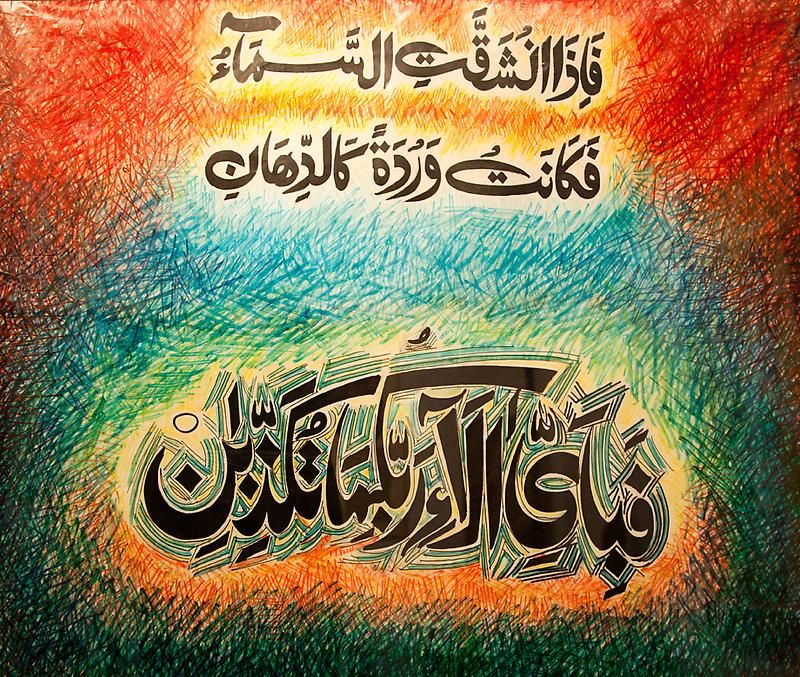 فَاِذَا انْشَقَّتِ السَّمَآءُ
فَكَانَتْ وَرْدَةً كَالدِّهَانِ
فَبِاَيِّ اٰلَآءِ رَبِّكُمَا تُكَذِّبٰنِ